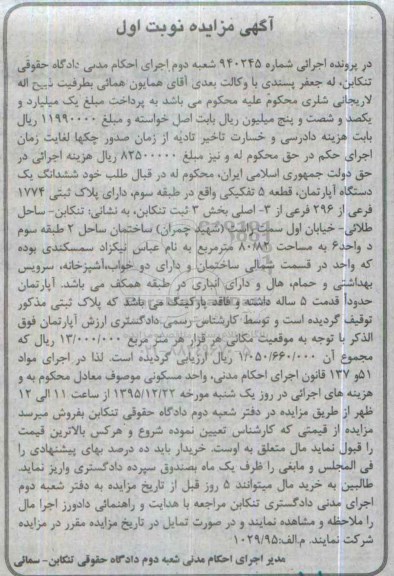 آگهی مزایده نوبت اول
در پرونده اجرائی شماره ۹۴۰۲۴۵ شعبه دوم اجرای احکام مدنی دادگاه حقوقی
تنکابن، له جعفر پسندی با وکالت بعدی آقای همایون همائی بطرفیت ذبیح اله
لاریجانی شلری محکوم علیه محکوم می باشد به پرداخت مبلغ یک میلیارد و
یکصد و شصت و پنج میلیون ریال بابت اصل خواسته و مبلغ ۱۱۹۹۰۰۰۰ ریال
بابت هزینه دادرسی و خسارت تاخیر تادیه از زمان صدور چکها لغایت زمان
اجرای حکم در حق محکوم له و نیز مبلغ ۸۲۵۰۰۰۰۰ ریال هزینه اجرائی در
حق دولت جمهوری اسلامی ایران، محکوم له در قبال طلب خود ششدانگ یک
دستگاه آپارتمان، قطعه ۵ تفکیکی واقع در طبقه سوم، دارای پلاک ثبتی ۱۷۷۴
فرعی از ۲۹۶ فرعی از ۳- اصلی بخش ۳ ثبت تنکابن، به نشانی: تنکابن- ساحل
طلائی- خیابان اول سمت راست (شهید چمران) ساختمان ساحل ۲ طبقه سوم
د واحد۶ به مساحت ۸۰/۸۲ مترمربع به نام عباس نیکزاد سمسکندی بوده
که واحد در قسمت شمالی ساختمان و دارای دو خواب،آشپزخانه، سرویس
بهداشتی و حمام، هال و دارای انباری در طبقه همکف می باشد. آپارتمان
حدوداً قدمت ۵ ساله داشته و فاقد پارکینگ می باشد که پلاک ثبتی مذکور
توقیف گردیده است و توسط کارشناس رسمی دادگستری ارزش آپارتمان فوق
الذکر با توجه به موقعیت مکانی هر قرار هر متر مربع ۱۳/۰۰۰/۰۰۰ ریال که
مجموع آن ۱/۰۵۰/۶۶۰/۰۰۰ ریال ارزیابی گردیده است. لذا در اجرای مواد
۵۱و ۱۳۷ قانون اجرای احکام مدنی، واحد مسکونی موصوف معادل محکوم به و
هزینه های اجرائی در روز یک شنبه مورخه ۱۳۹۵/۱۲/۲۲ از ساعت ۱۱ الی ۱۲
ظهر از طریق مزایده در دفتر شعبه دوم دادگاه حقوقی تنکابن بفروش میرسد
مزایده از قیمتی که کارشناس تعیین نموده شروع و هرکس بالاترین قیمت
را قبول نماید مال متعلق به اوست. خریدار باید ده درصد بهای پیشنهادی را
فی المجلس و مابغی را ظرف یک ماه بصندوق سپرده دادگستری واریز نماید.
طالبین به خرید مال میتوانند ۵ روز قبل از تاریخ مزایده به دفتر شعبه دوم
اجرای مدنی دادگستری تنکابن مراجعه با هدایت و راهنمائی دادورز اجرا مال
را ملاحظه و مشاهده نمایند و در صورت تمایل در تاریخ مزایده مقرر در مزایده
شرکت نمایند. م.الف:۱۰۲۹/۹۵
مدیر اجرای احکام مدنی شعبه دوم دادگاه حقوقی تنکابن- سمائی